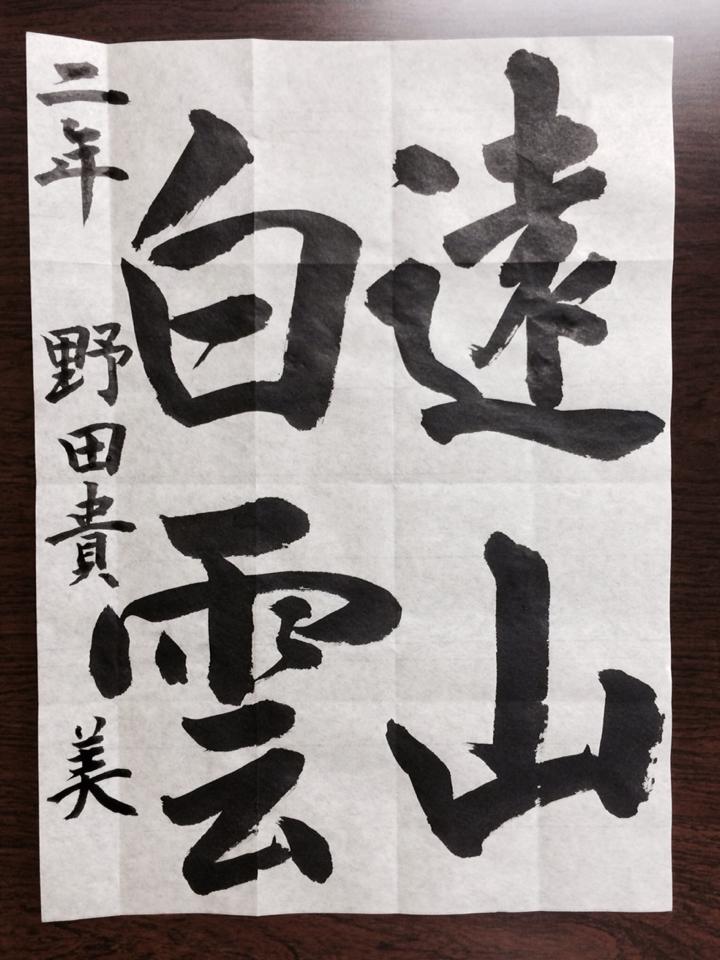 遠山
白雲
二年 野田貴美